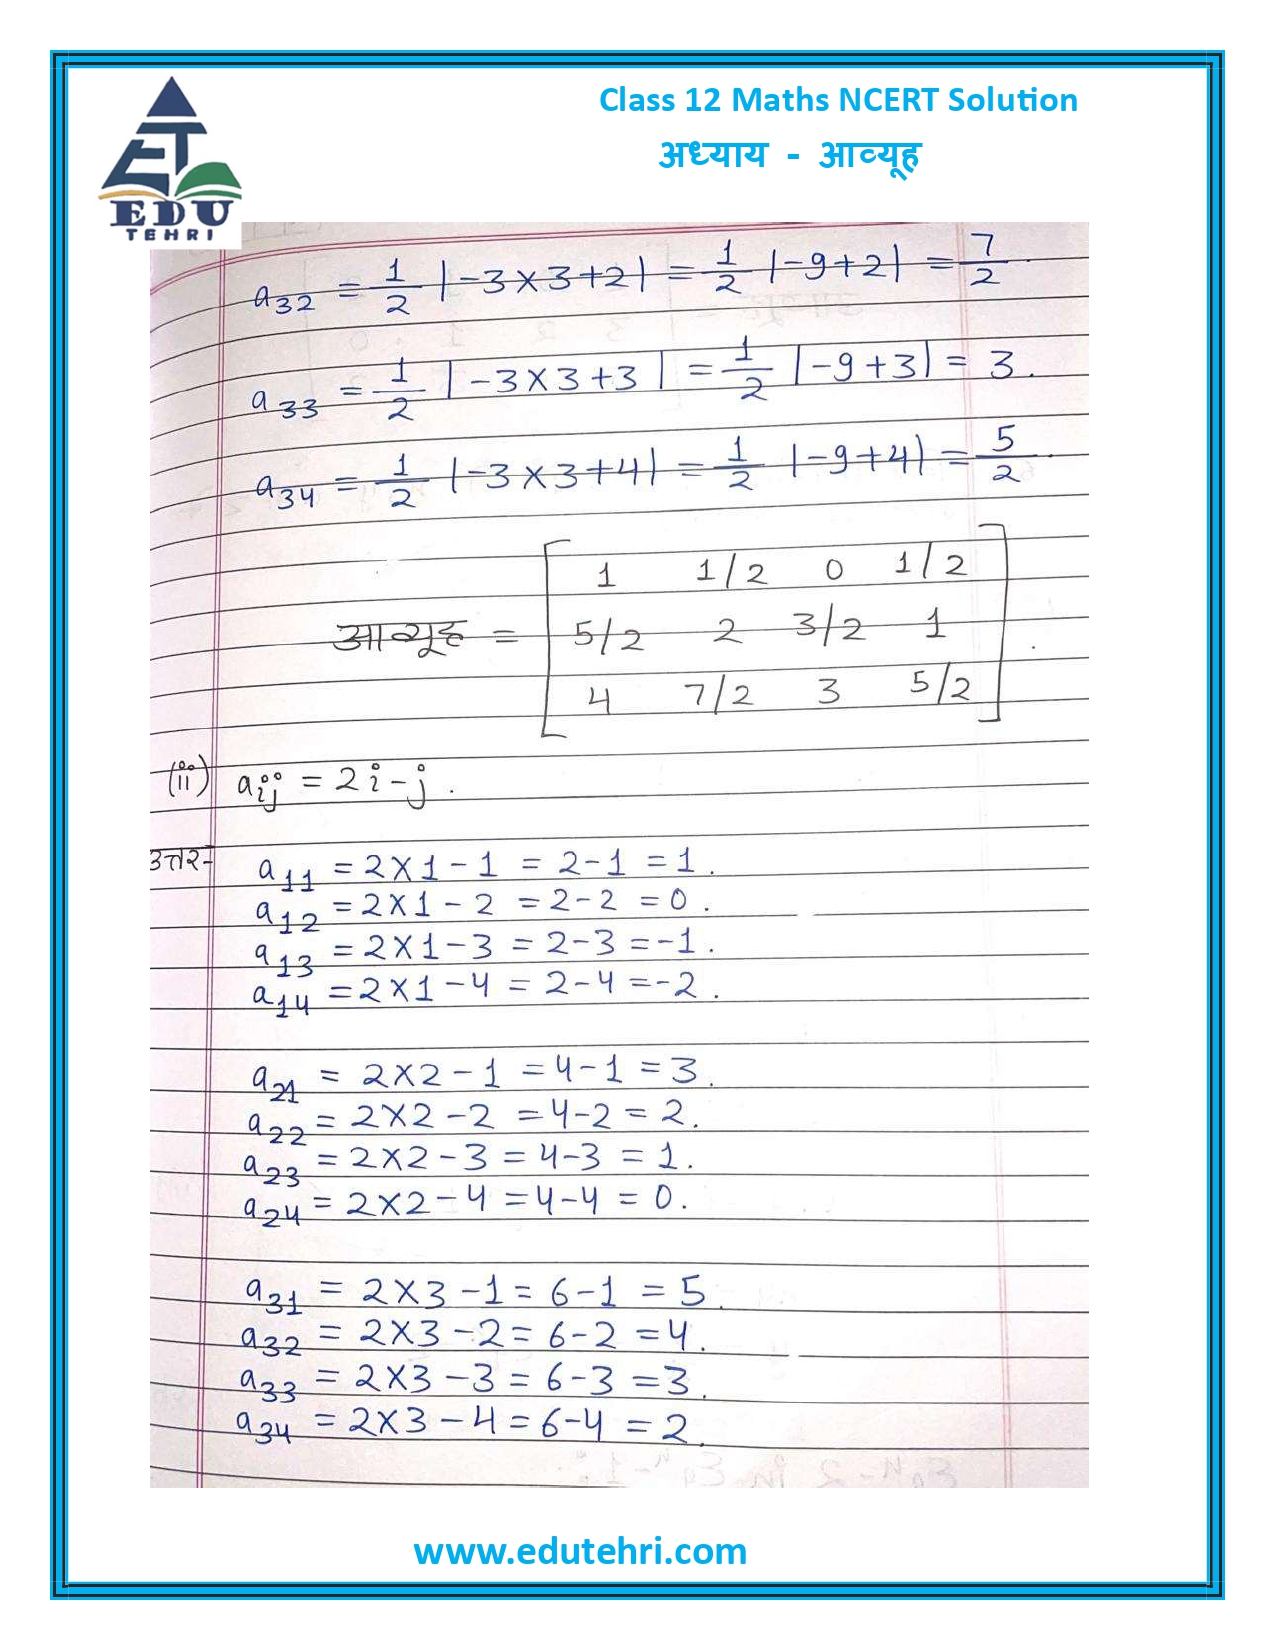 Class 12 Maths NCERT Solution
अध्याय - आव्यूह
EDU
TEHRI
a32 = 1/2 |-3×3+2| = 1/2 |-9+2| = 7/2.
a33 = 1/2 |-3×3+3| = 1/2 |-9+3| = 3.
a34 = 1/2 |-3×3+4| = 1/2 |-9+4| = 5/2.
1 1/2 0 1/2
आव्यूह = 5/2 2 3/2 1
4 7/2 3 5/2
(ii) aij = 2i-j.
उत्तर- a11 = 2×1-1 = 2-1 = 1.
a12 = 2×1-2 = 2-2 = 0.
a13 = 2×1-3 = 2-3 = -1.
a14 = 2×1-4 = 2-4 = -2.
a21 = 2×2-1 = 4-1 = 3.
a22 = 2×2-2 = 4-2 = 2.
a23 = 2×2-3 = 4-3 = 1.
a24 = 2×2-4 = 4-4 = 0.
a31 = 2×3-1 = 6-1 = 5.
a32 = 2×3-2 = 6-2 = 4.
a33 = 2×3-3 = 6-3 = 3.
a34 = 2×3-4 = 6-4 = 2.
www.edutehri.com